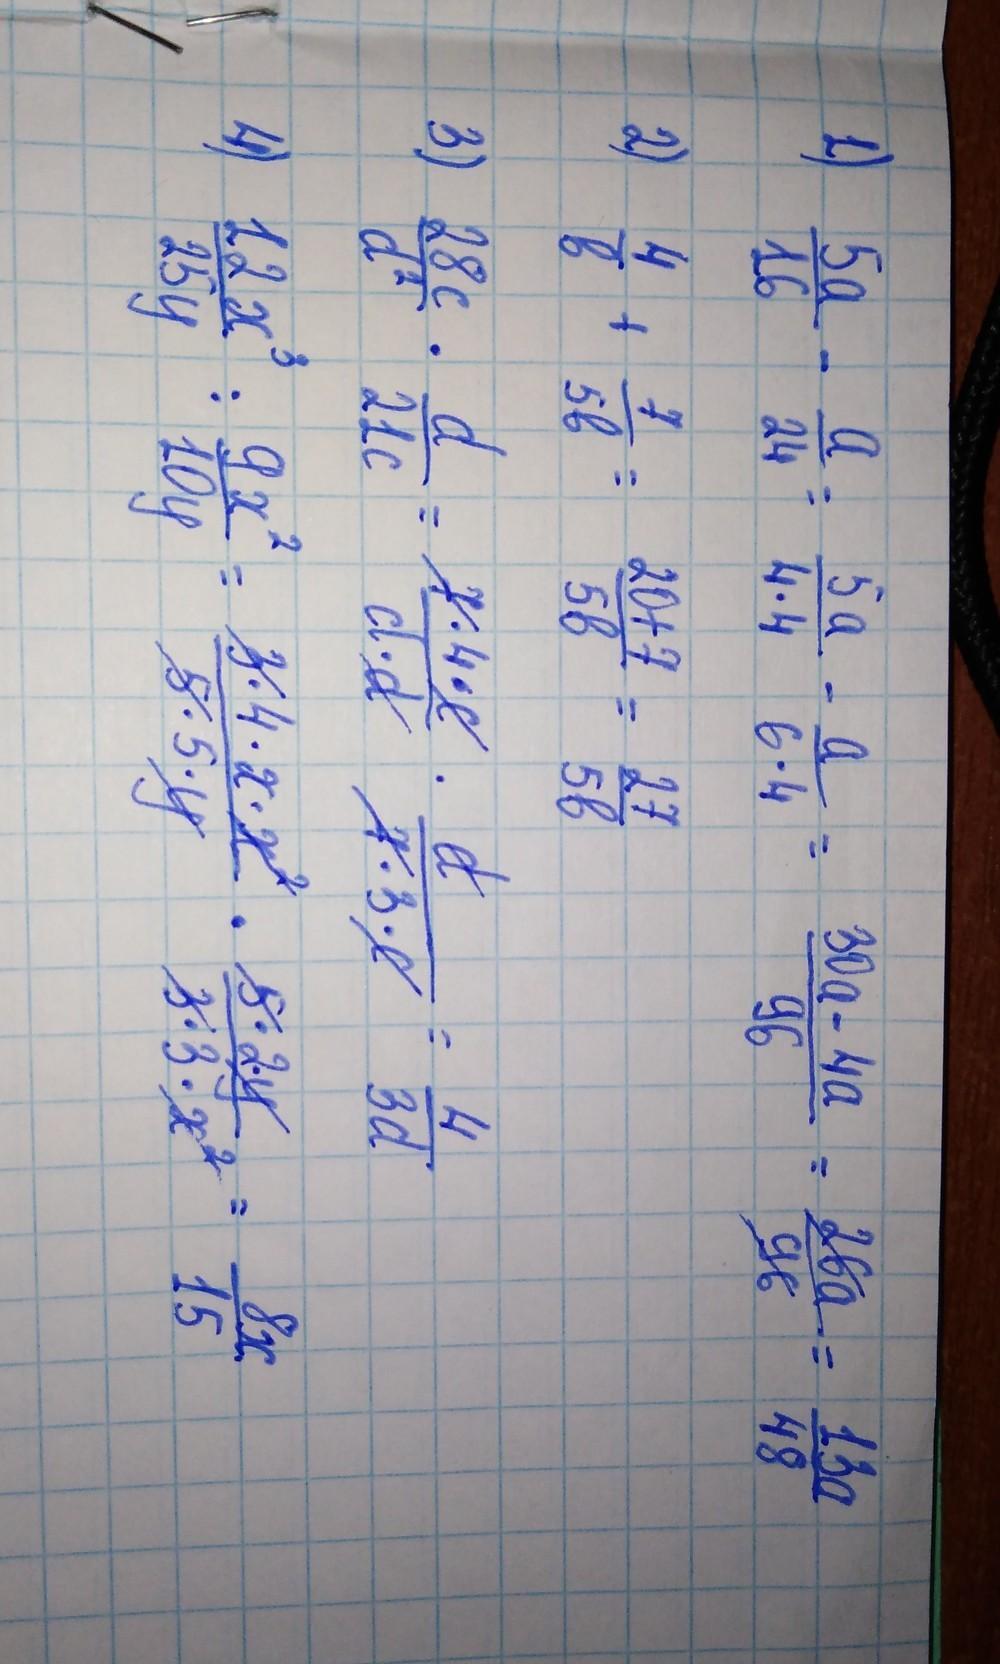 1) 5a/16 - a/24 = 5a/4·4 - a/6·4 = 30a-4a/96 = 26a/96 = 13a/48
2) 4/b + 7/5b = 20+7/5b = 27/5b
3) 28c/d² · d/21c = 7·4·c/d·d · d/7·3·c = 4/3d
4) 12x³/25y : 9x²/10y = 3·4·x·x²/5·5·y · 5·2·y/3·3·x² = 8x/15